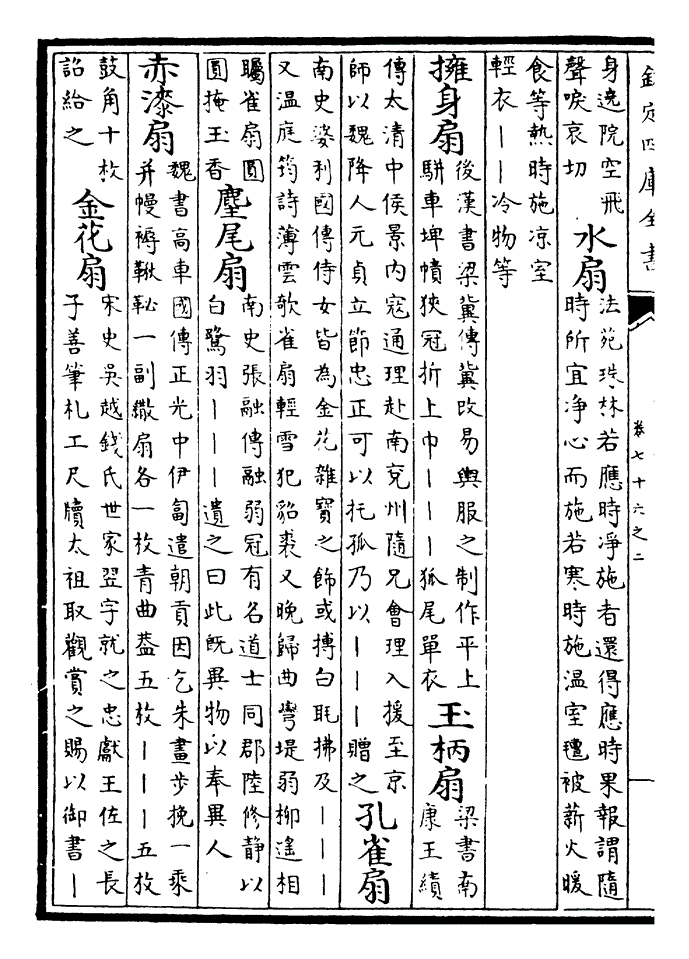 欽定四庫全書
卷七十六之二
身遶院空飛
聲唳哀切
水扇
法苑珠林若應時淨施者還得應時果報謂隨
時所宜净心而施若寒時施温室氊被薪火暖
食等熱時施凉室
輕衣｜｜冷物等
擁身扇
後漢書梁冀傳冀改易輿服之制作平上
駢車埤幘狹冠折上巾｜｜｜狐尾單衣
玉柄扇
梁書南
康王績
傳太清中侯景内寇通理赴南兖州隨兄會理入援至京
師以魏降人元貞立節忠正可以托孤乃以｜｜｜贈之
孔雀扇
南史婆利國傳侍女皆為金花雜寶之飾或摶白毦拂及｜｜｜
又温庭筠詩薄雲欹雀扇輕雪犯貂裘又晚歸曲彎堤弱柳遙相
矚雀扇圓
圓掩玉香
麈尾扇
南史張融傳融弱冠有名道士同郡陸修静以
白鷺羽｜｜｜遺之曰此既異物以奉異人
赤漆扇
魏書高車國傳正光中伊匐遣朝貢因乞朱畫步挽一乘
并幔褥鞦䩛一副繖扇各一枚青曲葢五枚｜｜｜五枚
鼓角十枚
詔給之
金花扇
宋史吳越錢氏世家翌字就之忠獻王佐之長
子善筆札工尺牘太祖取觀賞之賜以御書｜